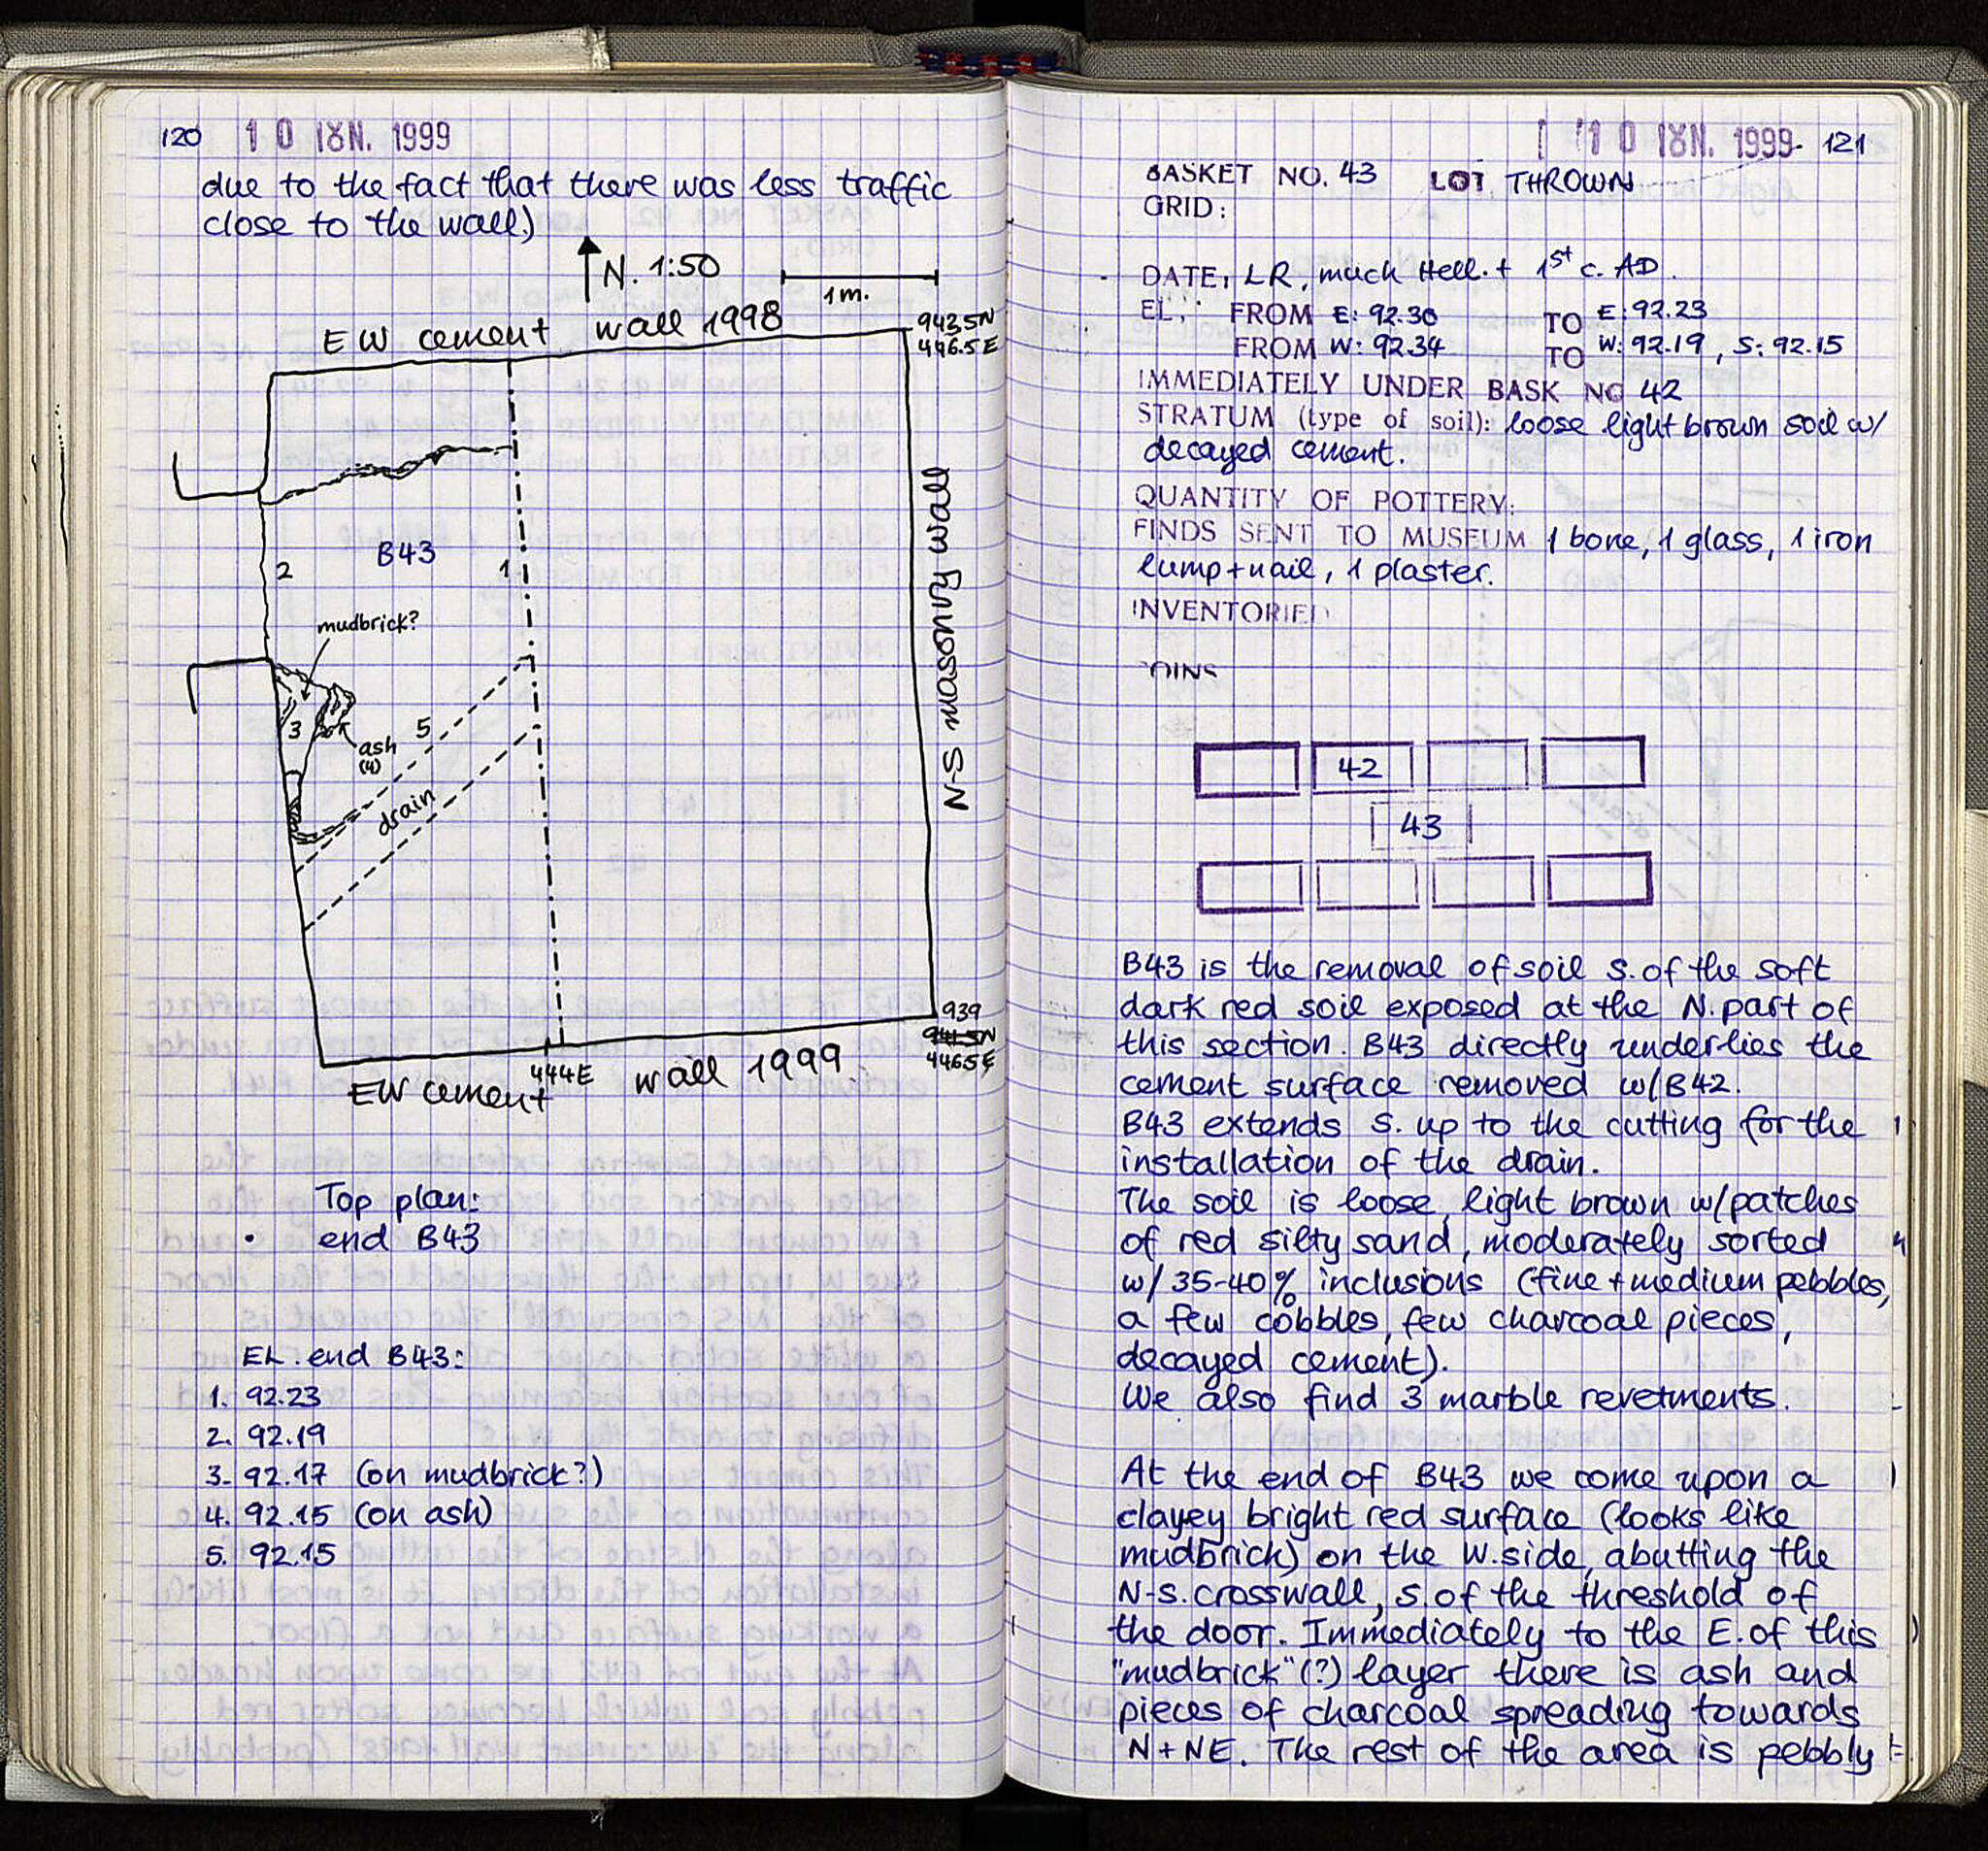 120 10 ΙΟΥΝ. 1999
due to the fact that there was less traffic
close to the wall)
N. 1:50
1m.
EW cement wall 1998
943.5N
446.5E
B43
2
1
mudbrick?
3
ash
(4)
5
drain
N-S masonry wall
939
446.5E
444E
EW cement wall 1999
Top plan:
end B43
EL. end B43:
1. 92.23
2. 92.19
3. 92.17 (on mudbrick?)
4. 92.15 (on ash)
5. 92.15
10 ΙΟΥΝ. 1999 121
BASKET NO. 43 LOT THROWN
GRID:
DATE: LR, much Hell. + 1st c. AD.
EL.: FROM E: 92.30 TO E: 92.23
FROM W: 92.34 TO W: 92.19, S: 92.15
IMMEDIATELY UNDER BASK NO 42
STRATUM (type of soil): loose light brown soil w/
decayed cement.
QUANTITY OF POTTERY:
FINDS SENT TO MUSEUM 1 bone, 1 glass, 1 iron
lump + nail, 1 plaster.
INVENTORIED
OINS
42
43
B43 is the removal of soil S. of the soft
dark red soil exposed at the N. part of
this section. B43 directly underlies the
cement surface removed w/B42.
B43 extends S. up to the cutting for the
installation of the drain.
The soil is loose, light brown w/patches
of red silty sand, moderately sorted
w/ 35-40% inclusions (fine + medium pebbles,
a few cobbles, few charcoal pieces,
decayed cement).
We also find 3 marble revetments.
At the end of B43 we come upon a
clayey bright red surface (looks like
mudbrick) on the W. side, abutting the
N-S. crosswall, S. of the threshold of
the door. Immediately to the E. of this
"mudbrick"(?) layer there is ash and
pieces of charcoal spreading towards
N + NE. The rest of the area is pebbly